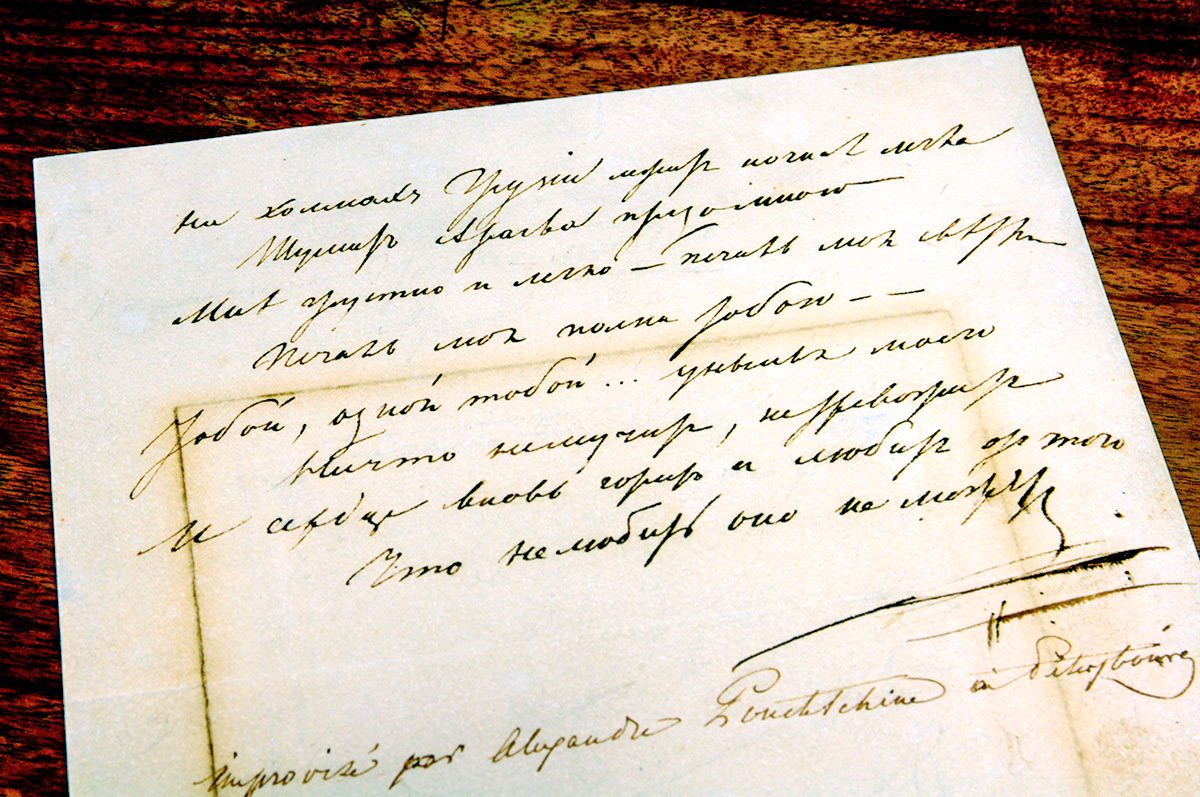 на холмахъ Грузіи лежитъ ночная мгла
Шумитъ Арагва предомною
Мнѣ грустно и легко — печаль моя свѣтла
Печаль моя полна тобою — —
Тобой, одной тобой... унынья моего
Ничто немучитъ, нетревожитъ
И сердце вновь горитъ и любитъ отъ того
Что нелюбить оно не можетъ
improvisé par Alexandre Pouchtchine à Pétersbourg